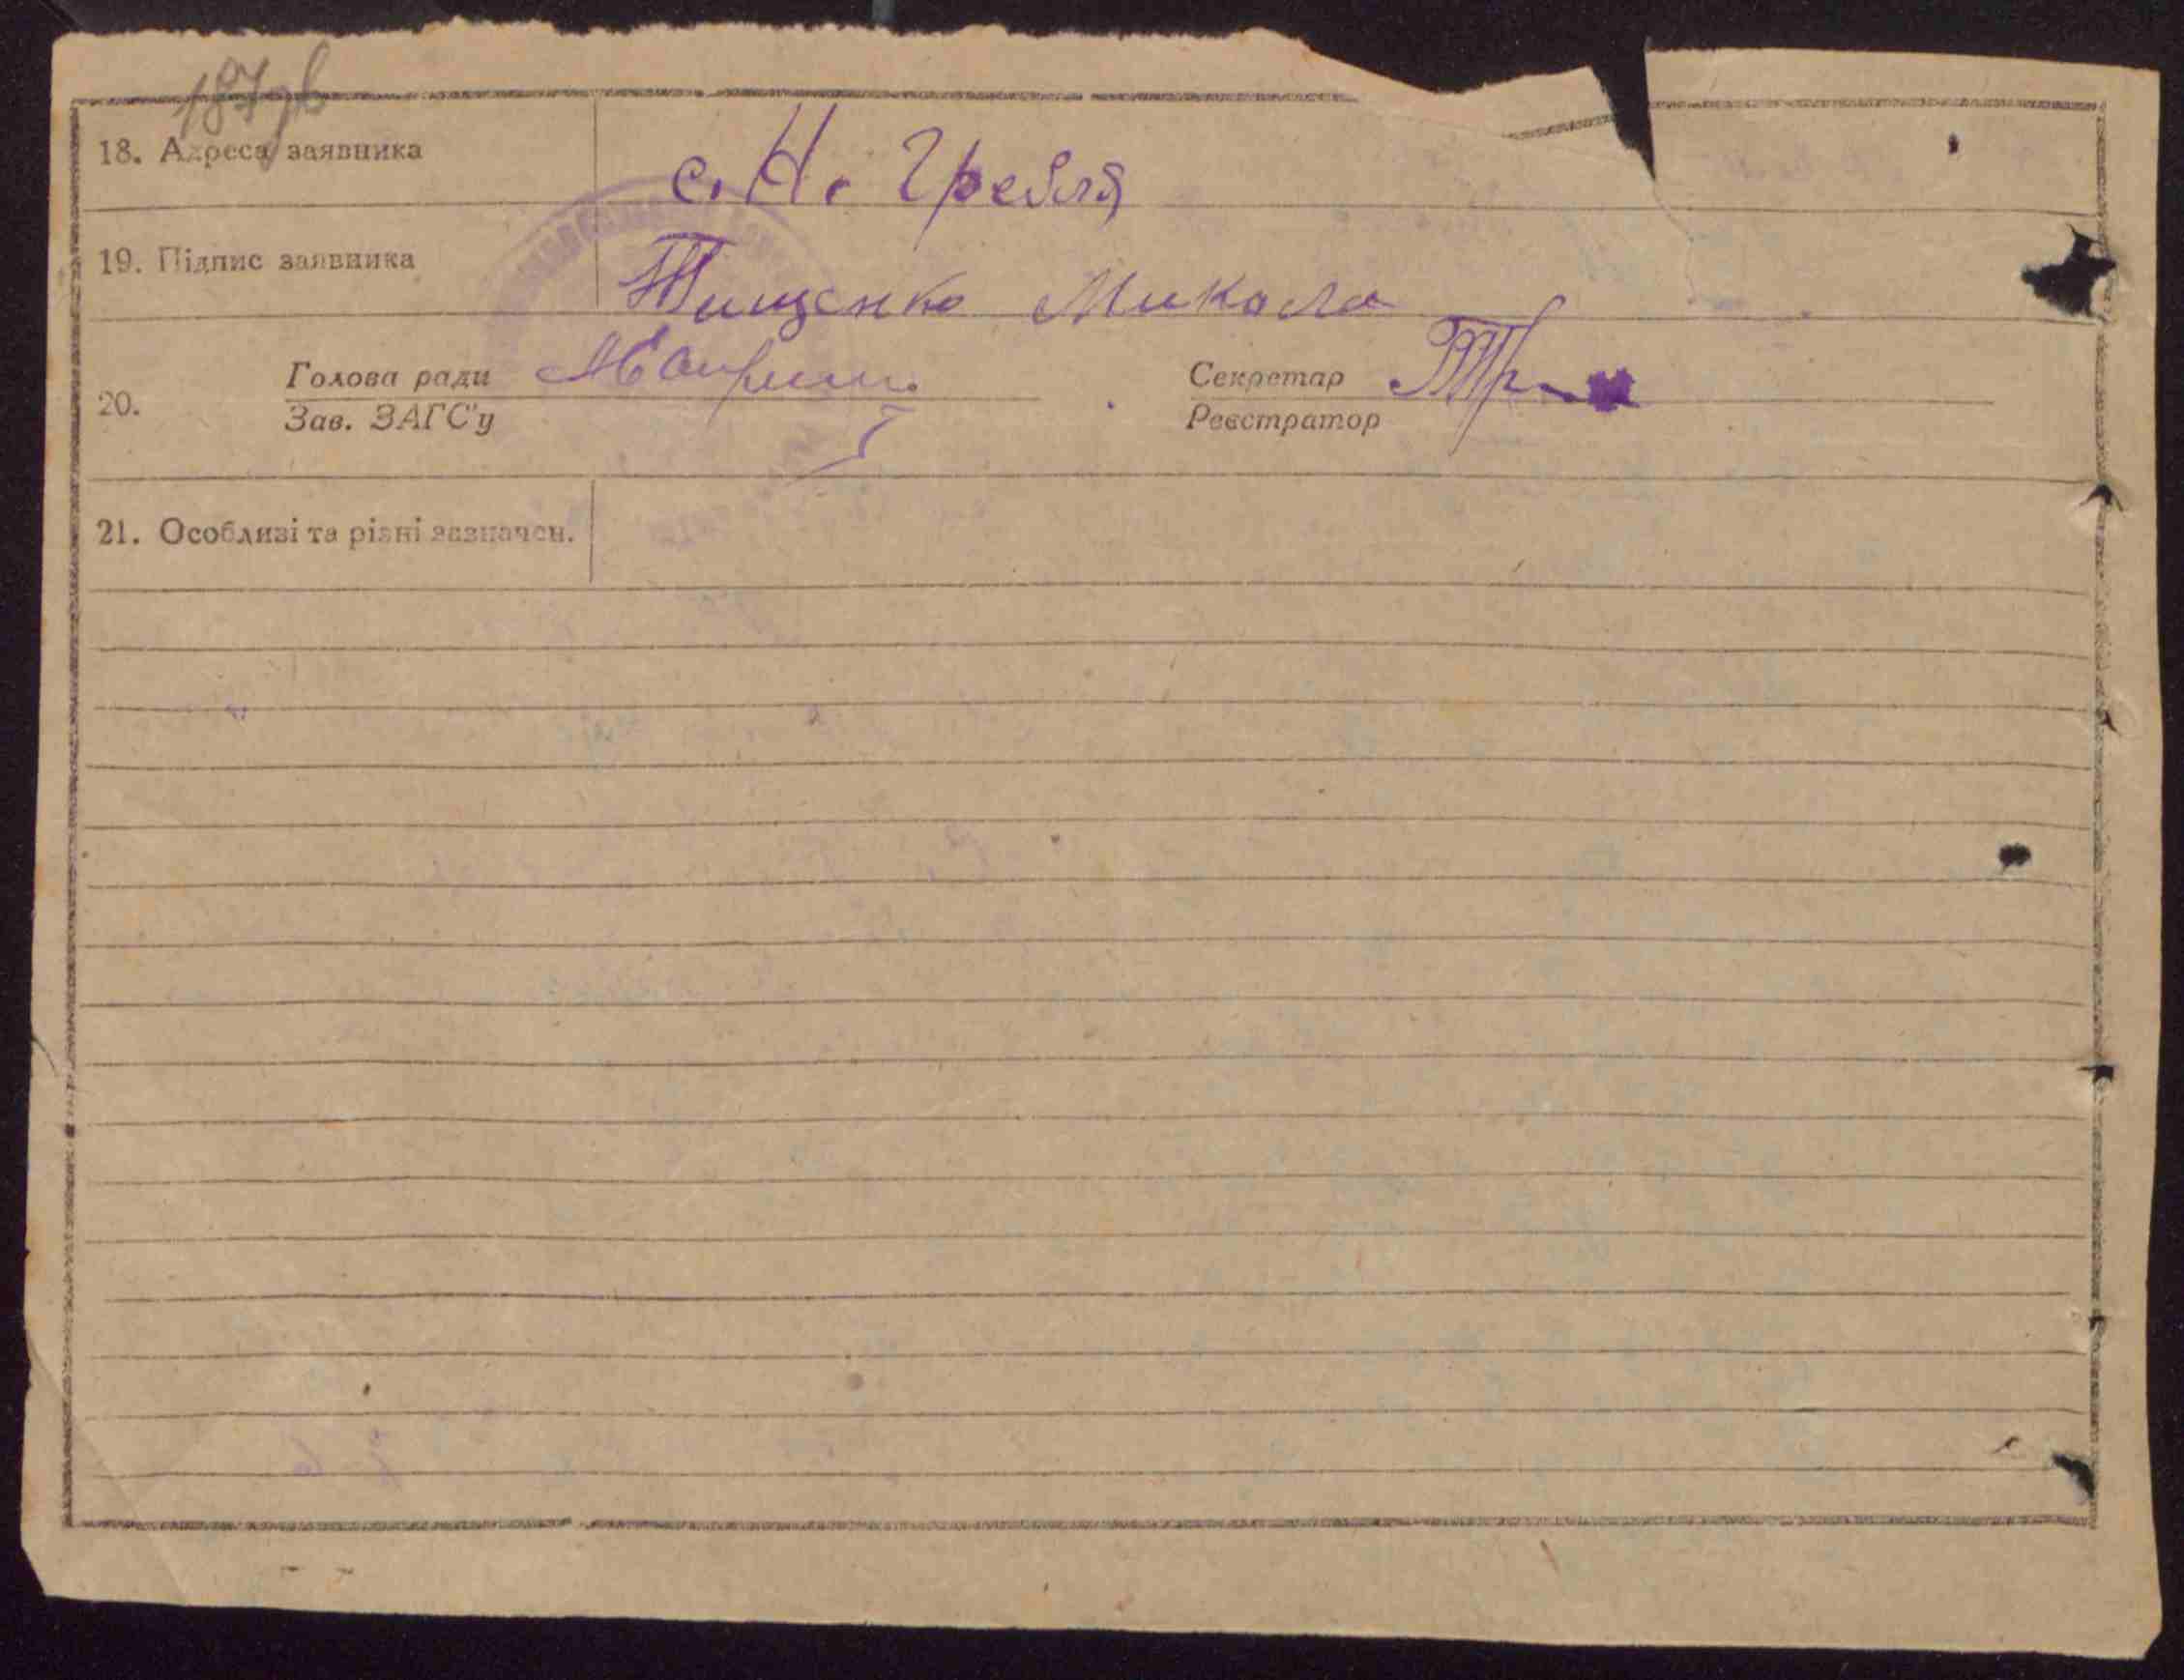 187зв
18. Адреса заявника с. Н. Гребля
19. Підпис заявника Тищенко Микола
Голова ради Секретар
20.
Зав. ЗАГС'у Реєстратор
21. Особливі та різні зазначен.